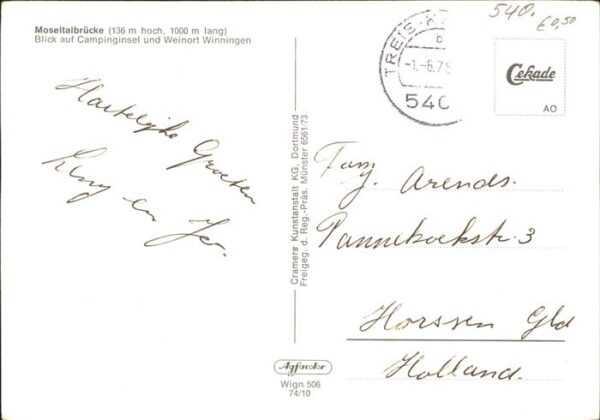 Moseltalbrücke (136 m hoch, 1000 m lang)
Blick auf Campinginsel und Weinort Winningen
540.
€0,50
TREIS-KA
b
-1.-6.7
540
Cekade
AO
Hartelijke Groeten
en
Cramers Kunstanstalt KG, Dortmund
Freigeg. d. Reg.-Präs. Münster 6561/73
Fam.
J. Arends.
Pannekoekstr. 3
Horssen Gld
Holland.
Agfacolor
Wign 506
74/10